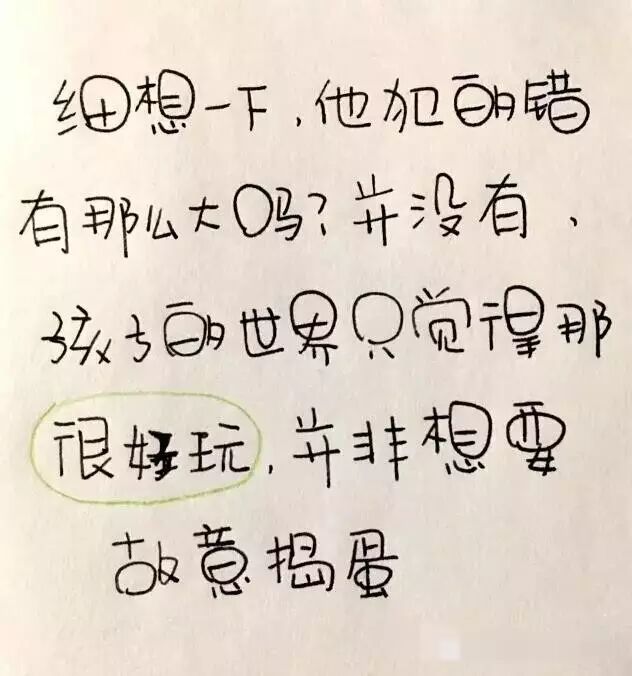 细想一下,他犯的错
有那么大吗?并没有,
孩子的世界只觉得那
很好玩,并非想要
故意捣蛋